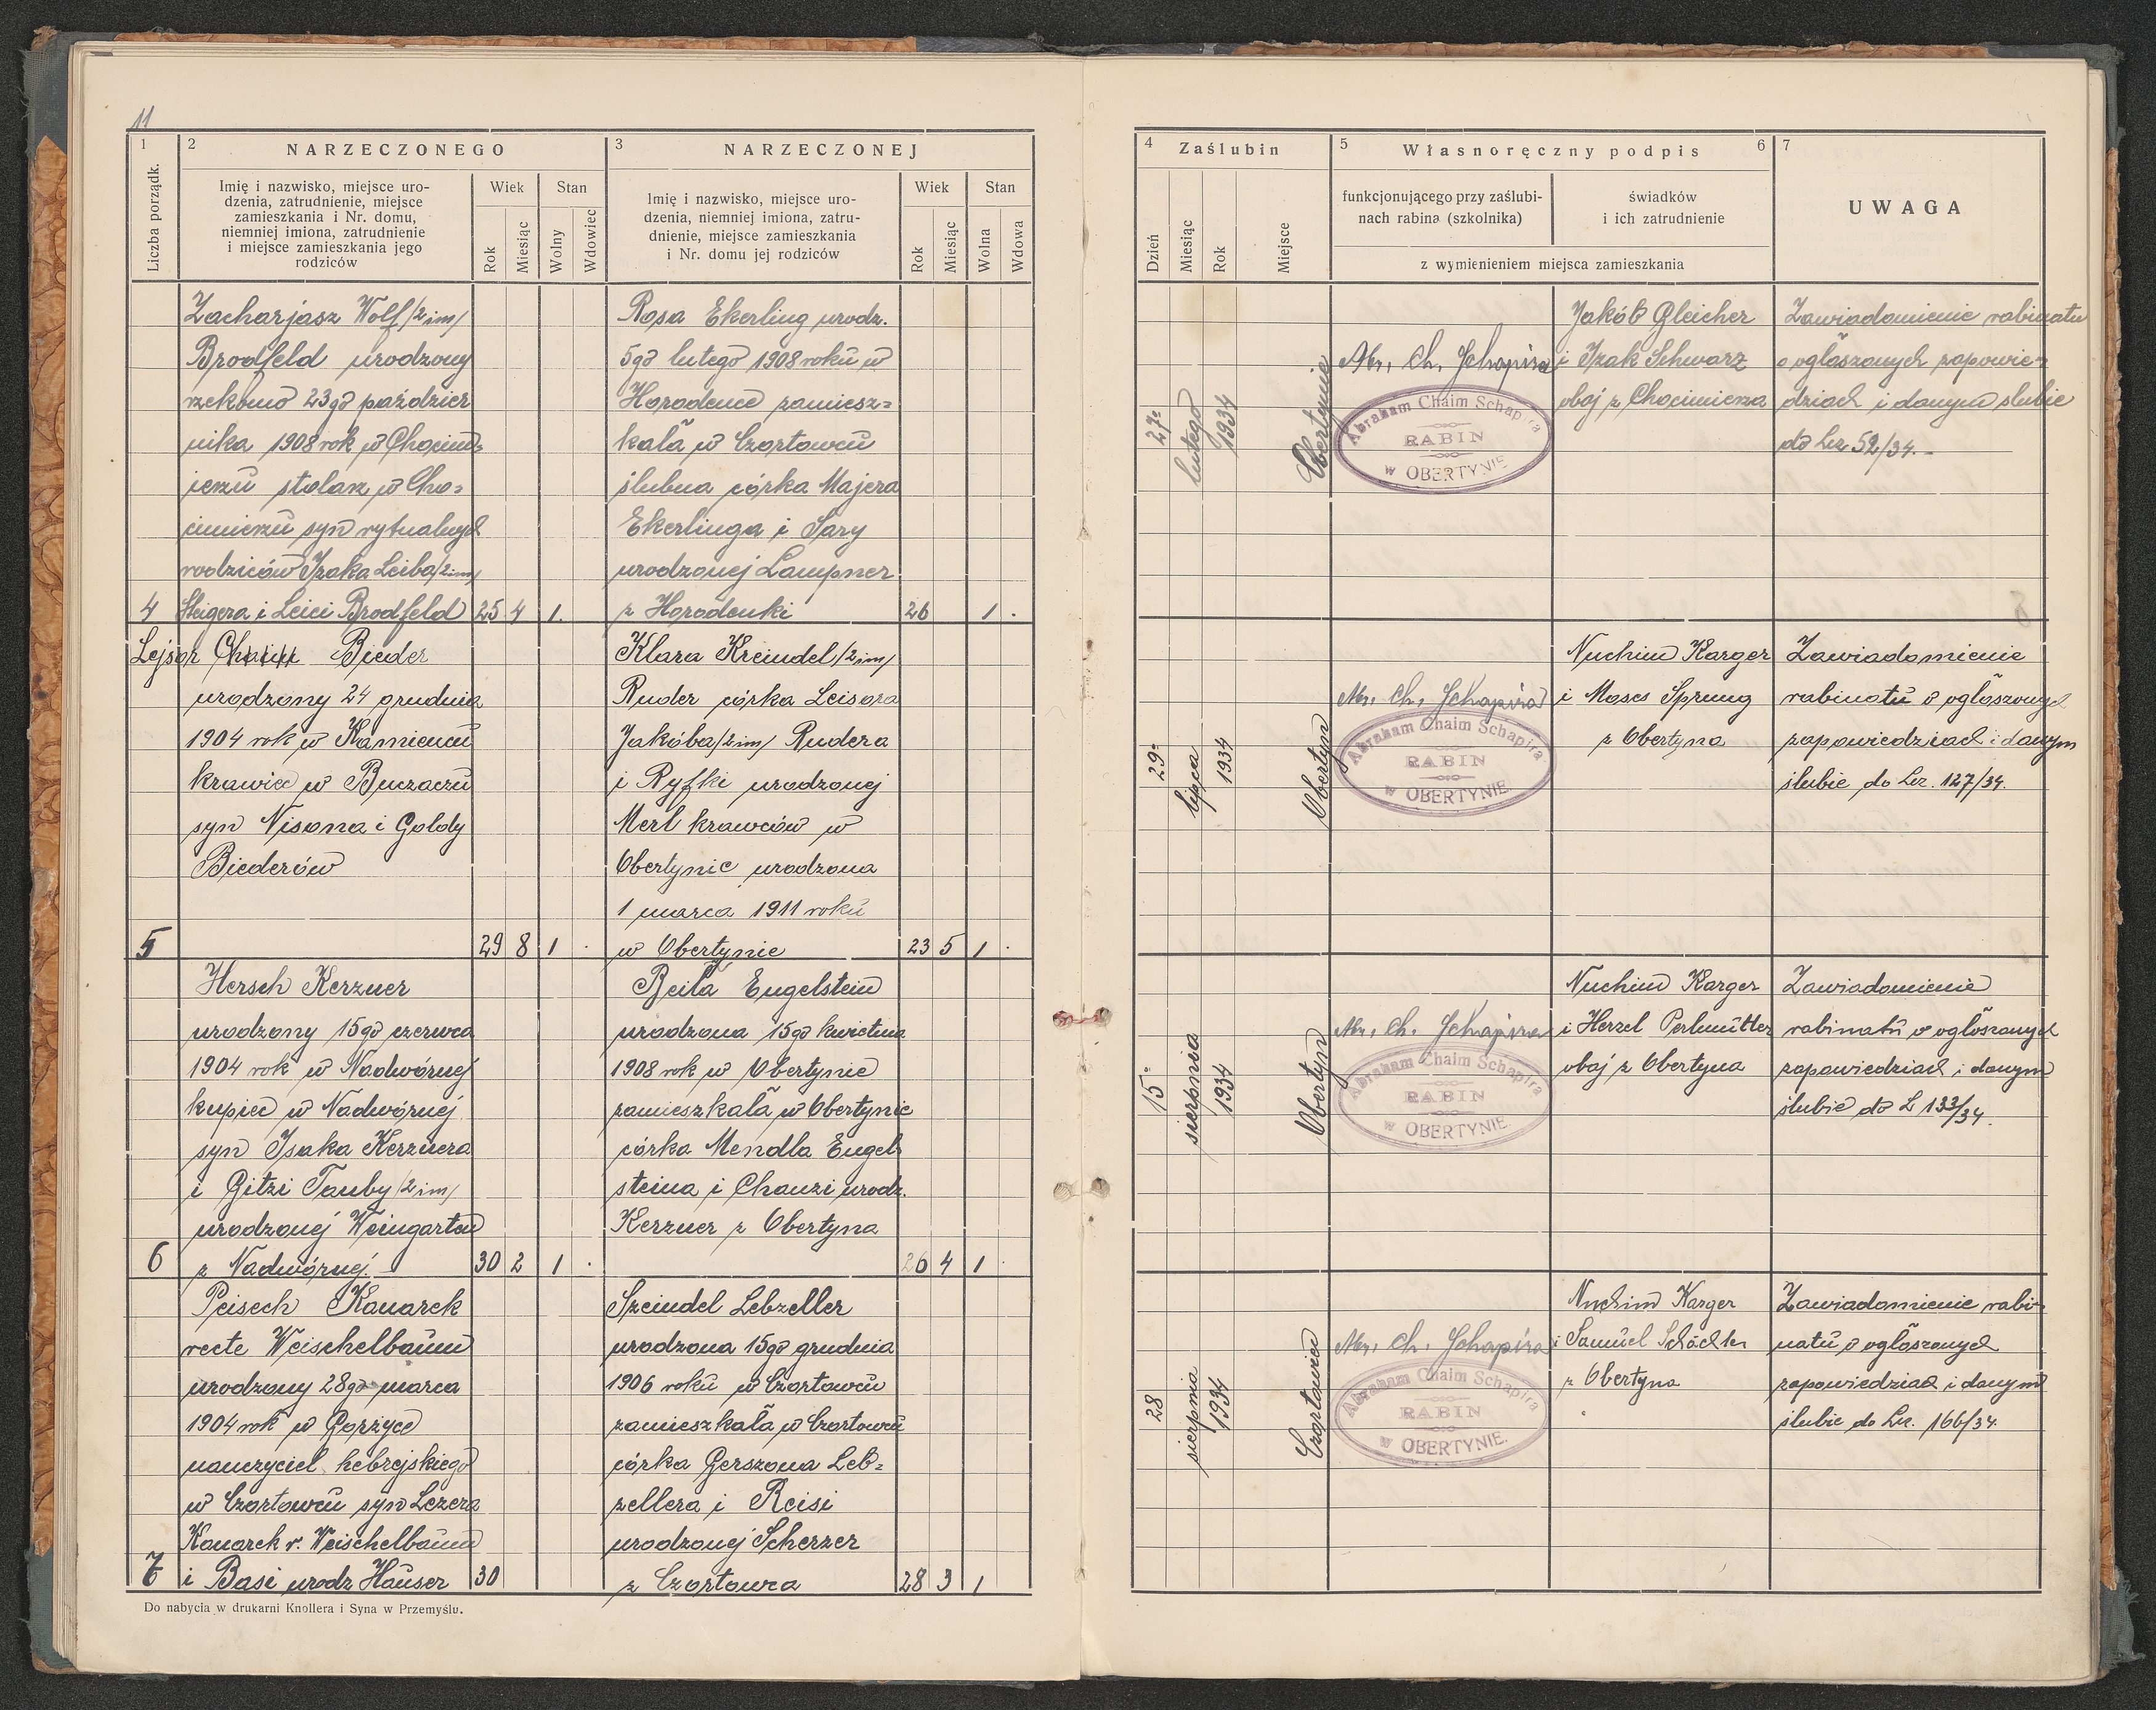 11
1
Liczba porządk.
2
NARZECZONEGO
Imię i nazwisko, miejsce uro-
dzenia, zatrudnienie, miejsce
zamieszkania i Nr. domu,
niemniej imiona, zatrudnienie
i miejsce zamieszkania jego
rodziców
Wiek
Stan
Rok
Miesiąc
Wolny
Wdowiec
3
NARZECZONEJ
Imię i nazwisko, miejsce uro-
dzenia, niemniej imiona, zatru-
dnienie, miejsce zamieszkania
i Nr. domu jej rodziców
Wiek
Stan
Rok
Miesiąc
Wolna
Wdowa
4
Zaślubin
Dzień
Miesiąc
Rok
Miejsce
5
Własnoręczny podpis
6
funkcjonującego przy zaślubi-
nach rabina (szkolnika)
świadków
i ich zatrudnienie
z wymienieniem miejsca zamieszkania
7
UWAGA
Zacharjasz Wolf /2 im/
Brodfeld urodzony
rzekomo 23go paździer
nika 1908 rok w Chocim-
ierzu stolarz w Cho=
cimierzu syn rytualnych
rodziców Izaka Leiba /2 im/
4 Steigera i Leici Brodfeld 25 4 1.
Rosa Ekerling urodz.
5go lutego 1908 roku w
Horodence zamiesz=
kała w Czortowcu
ślubna córka Majera
Ekerlinga i Sary
urodzonej Lampner
z Horodenki 26 1 .
27.
lutego
1934
Obertynie
Abr. Ch. Schapira
Abraham Chaim Schapira
RABIN
w OBERTYNIE
Jakób Gleicher
i Izak Schwarz
obaj z Chocimierza
Zawiadomienie rabinatu
o ogłoszonych zapowie-
dziach i danym ślubie
do Lcz 52/34.-
Lejsor Chaim Bieder
urodzony 24 grudnia
1904 rok w Kamiencu
krawiec w Buczaczu
syn Nisona i Goldy
Biederów
5 29 8 1 .
Klara Kreindel /2 im/
Ruder córka Leisora
Jakóba /2 im/ Rudera
i Ryfki urodzonej
Merl krawców w
Obertynie urodzona
1 marca 1911 roku
w Obertynie 23 5 1 .
29.
lipca
1934
Obertyn
Abr. Ch. Schapira
Abraham Chaim Schapira
RABIN
w OBERTYNIE
Nuchim Karger
i Moses Sprung
z Obertyna
Zawiadomienie
rabinatu o ogłoszonych
zapowiedziach i danym
ślubie do Lcz. 127/34.
Hersch Kerzner
urodzony 15go czerwca
1904 rok w Nadwórnej
kupiec w Nadwórnej
syn Isaka Kerznera
i Gitzi Tauby /2 im/
urodzonej Weingarten
6 z Nadwórnej. 30 2 1 .
Beila Engelstein
urodzona 15go kwietnia
1908 rok w Obertynie
zamieszkała w Obertynie
córka Mendla Engel
steina i Chanzi urodz.
Kerzner z Obertyna
26 4 1 .
15.
sierpnia
1934
Obertyn
Abr. Ch. Schapira
Abraham Chaim Schapira
RABIN
w OBERTYNIE
Nuchim Karger
i Herzel Perlmutter
obaj z Obertyna
Zawiadomienie
rabinatu o ogłoszonych
zapowiedziach i danym
ślubie do L 133/34.
Peisech Kanarek
recte Weischelbaum
urodzony 28go marca
1904 rok w Gorżyce
nauczyciel hebrejskiego
w Czortowcu syn Lezera
Kanarek r. Weischelbaum
7 i Basi urodz Hauser 30
Szeindel Lebzeller
urodzona 15go grudnia
1906 roku w Czortowcu
zamieszkała w Czortowcu
córka Gerszona Leb=
zellera i Reisi
urodzonej Scherzer
z Czortowca 28 3 1
28
sierpnia
1934
Czortowiec
Abr. Ch. Schapira
Abraham Chaim Schapira
RABIN
w OBERTYNIE.
Nuchim Karger
i Samuel Schächter
z Obertyna
Zawiadomienie rabi-
natu o ogłoszonych
zapowiedziach i danym
ślubie do Lcz. 166/34.
Do nabycia w drukarni Knollera i Syna w Przemyślu.